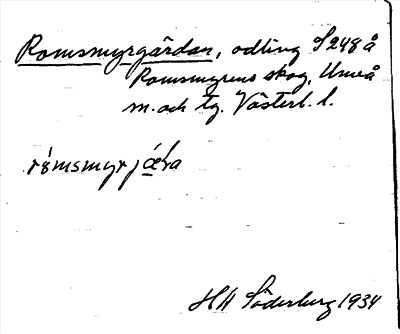 Romsmyrgärdan, odling S248å
Romsmyrens skog, Umeå
m. och tg. Västerb. l.
HH Söderberg 1934